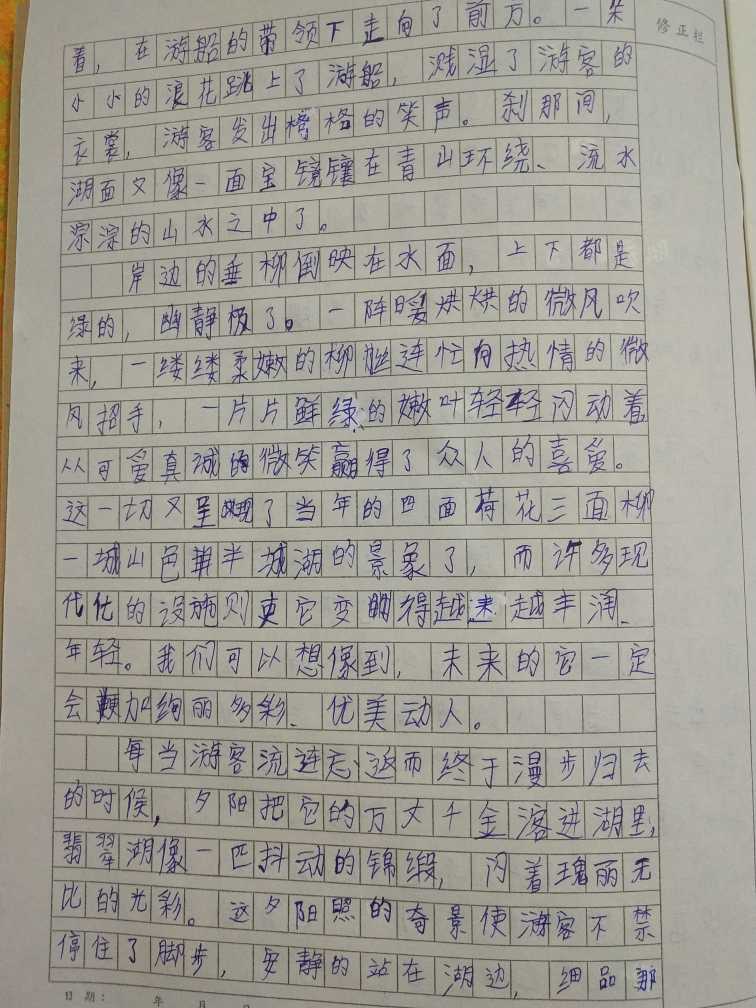 修正栏
着，在游船的带领下走向了前方。一朵
小小的浪花跳上了游船，溅湿了游客的
衣裳，游客发出格格的笑声。刹那间，
湖面又像一面宝镜镶在青山环绕、流水
淙淙的山水之中了。
岸边的垂柳倒映在水面，上下都是
绿的，幽静极了。一阵暖烘烘的微风吹
来，一缕缕柔嫩的柳连忙向热情的微
风招手，一片片鲜绿的嫩叶轻轻闪动着
从可爱真诚的微笑赢得了众人的喜爱。
这一切又呈现了当年的四面荷花三面柳
一城山色半城湖的景象了，而许多现
代化的设施则使它变得越来越丰润、
年轻。我们可以想像到，未来的它一定
会更加绚丽多彩、优美动人。
每当游客流连忘返而终于漫步归去
的时候，夕阳把它的万丈千金洒进湖里，
翡翠湖像一匹抖动的锦缎，闪着瑰丽无
比的光彩。这夕阳照的奇景使游客不禁
停住了脚步，安静的站在湖边，细品那
日期： 年 月 日